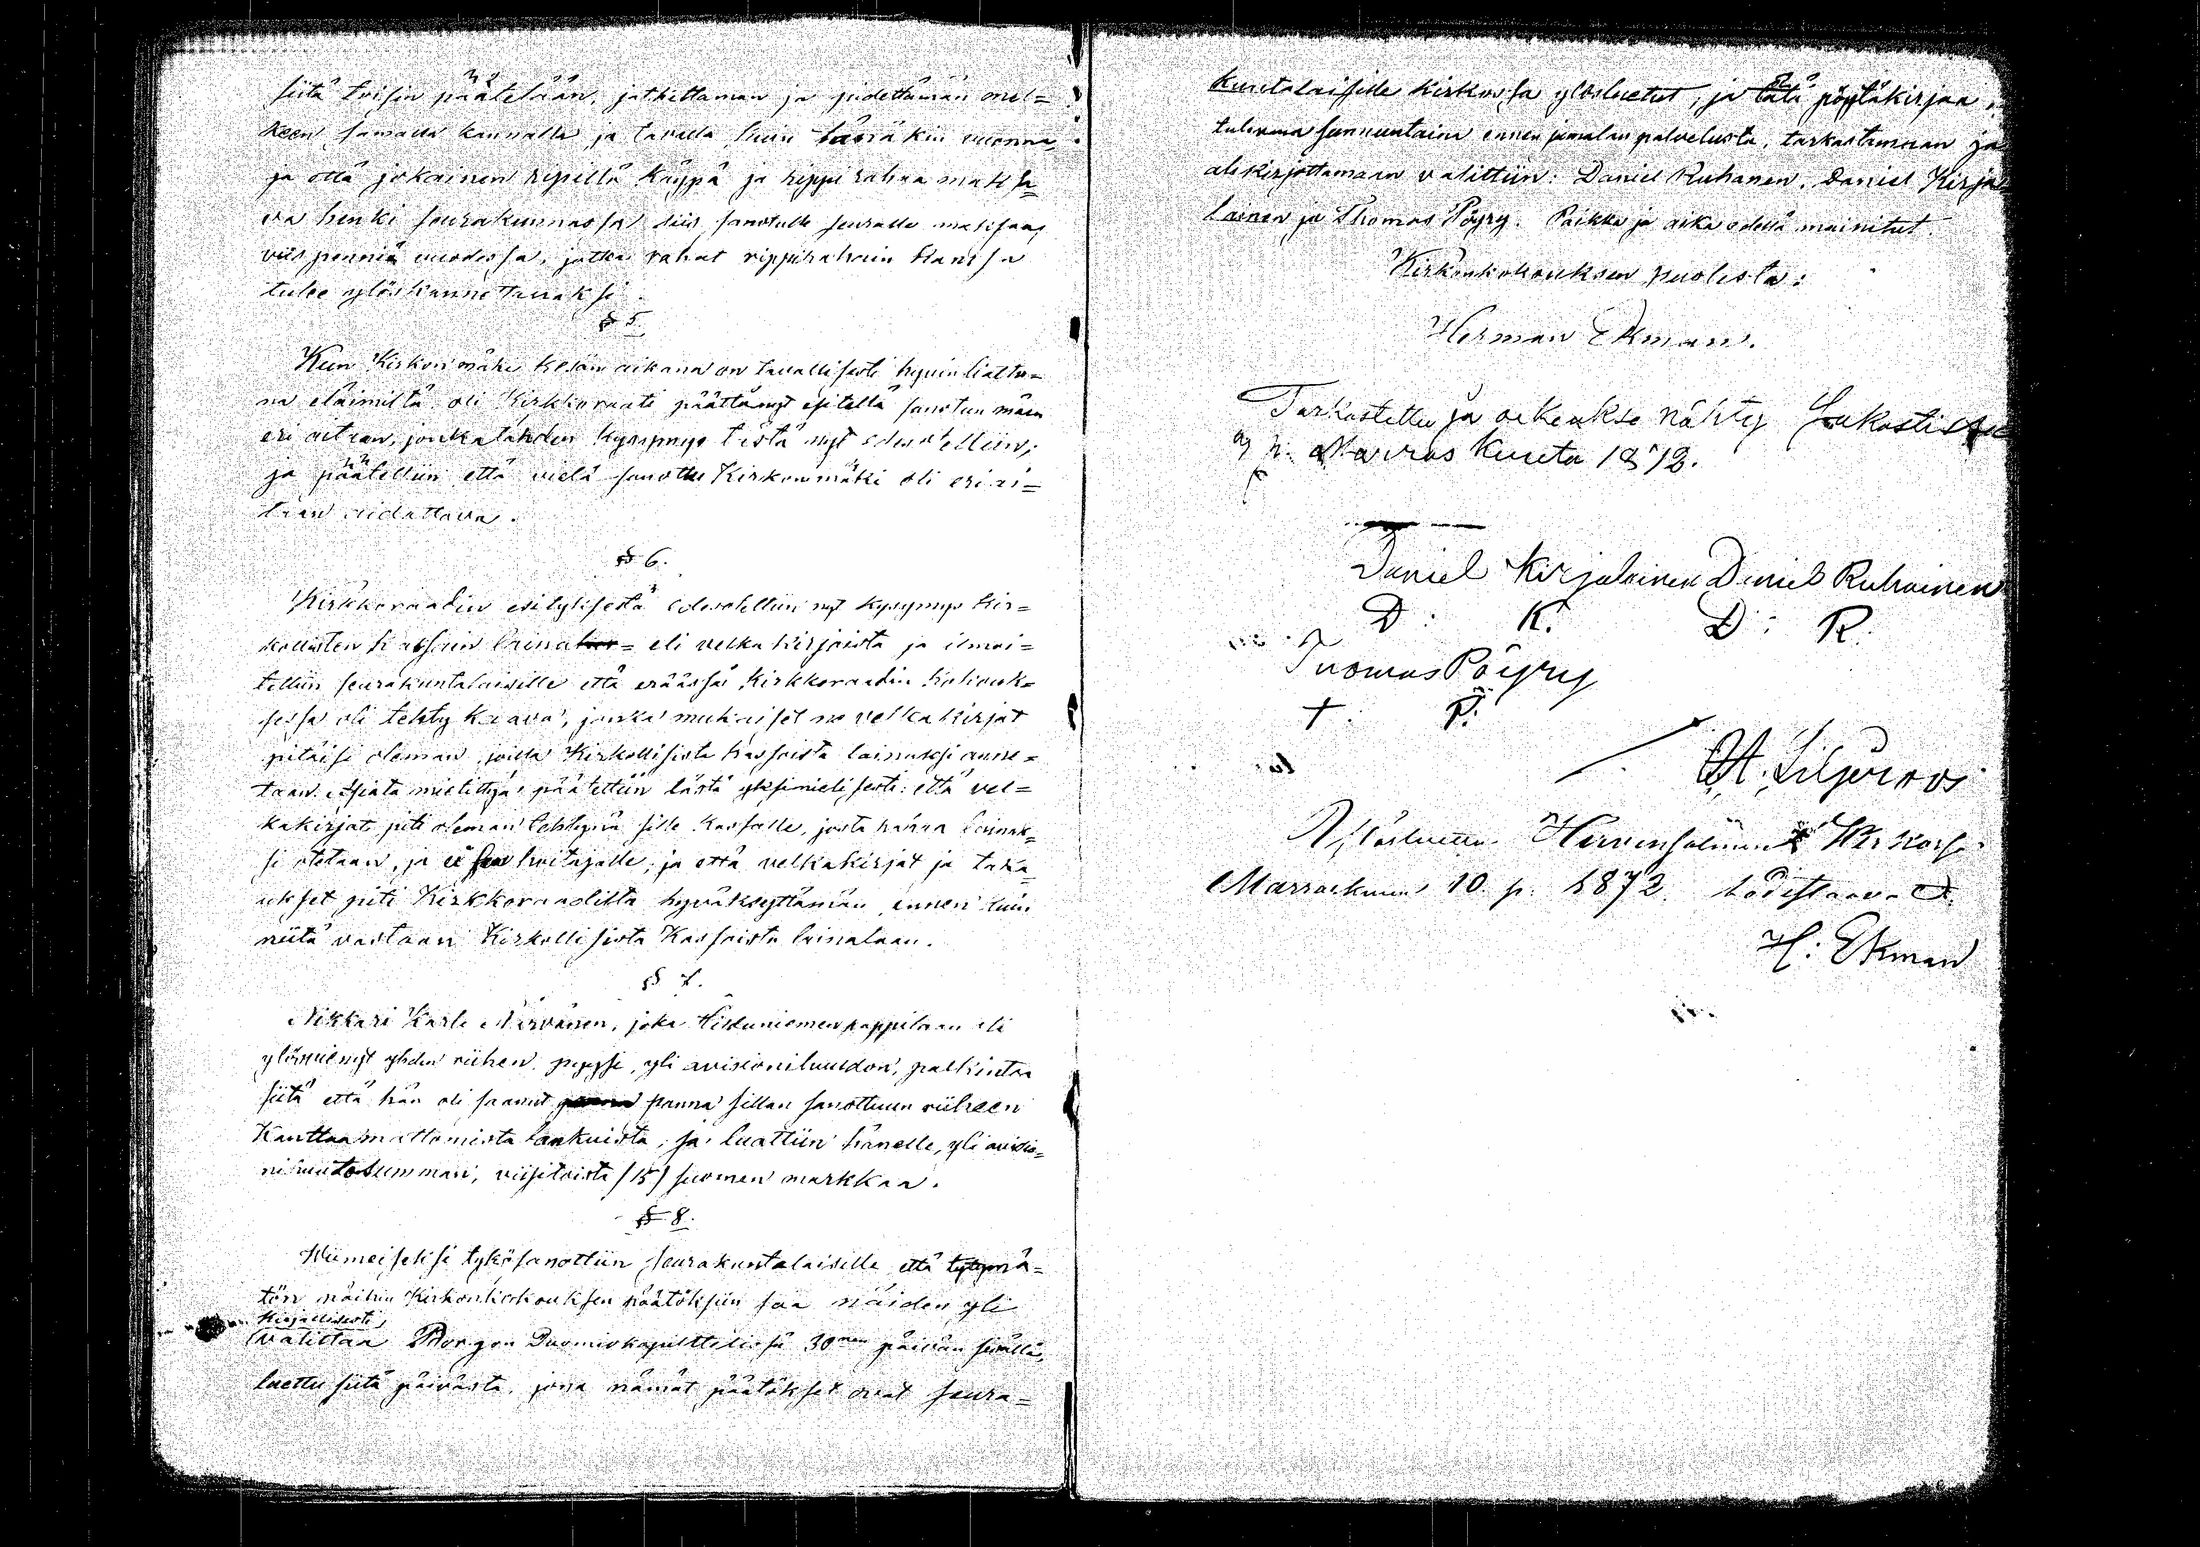 siitä toisin päätetään, jatkettaman ja pidettämän onel=
keen samalla kannalla ja tavalla kuin tässäkin vuonna,
ja että jokainen ripillä käypä ja rippi rahaa maksa=
va henki seurakunnassa siis sanotulle seuralle maksaa,
viis penniä vuodessa, jotka rahat rippirahain kanssa
tulee ylöskannettavaksi.
§ 5.
Kun Kirkon mäki kesän aikana on tavallisesti hyvin liattu=
na eläimiltä oli Kirkkoraati päättänyt esitellä sanotun mäen
eri aitaan, jonka tähden kysymys tästä nyt edesotettiin;
ja päätettiin että vielä sanottu Kirkonmäki oli eri ai=
taan aidattava.
§ 6.
Kirkkoraadin esityksestä edesotettiin nyt kysymys kir=
kollisten kassain laina= eli velka kirjoista ja ilmoi=
tettiin seurakuntalaisille että eräässä Kirkkoraadin kokouk=
sessa oli tehty kaava, jonka mukaiset ne velkakirjat
pitäisi oleman, joilla Kirkollisista kassoista lainaksi anne=
taan. Asiata mietittyä päätettiin tästä yksimielisesti: että vel=
kakirjat piti oleman tehtynä sille kassalle, josta rahaa lainak=
si otetaan, ja ei sen hoitajalle; ja että velkakirjat ja taka=
ukset piti Kirkkoraadilta hyväksyttämän, ennen kuin
niitä vastaan Kirkollisista Kassoista lainataan.
§ 7.
Nikkari Karle Närvänen, joka Hiskuniemen pappilaan oli
ylösvienyt yhden riihen, pyysi, yli avisioniluudon, palkintoa
siitä että hän oli saanut panna sillan sanottuun riiheen
Kanttaamattomista lankuista; ja luattiin hänelle, yli avisio=
ni summan, viisitoista /15/ suomen markkaa.
§ 8.
Wiimeiseksi tykösanottiin seurakuntalaisille että tytymä=
tön näihin Kirkonkokouksen päätöksiin saa näiden yli
kirjallisesti,
valittaa Borgon Duomiokapitttelissä 30nen päivän sisällä,
luettu siitä päivästä, jona nämät päätökset ovat seura=
kuntalaisille kirkossa ylösluetut; ja tätä pöytäkirjaa
tulevana sunnuntaina ennen jumalan palvelusta, tarkastamaan ja
alikirjottamaan valittiin: Daniel Ruhanen, Daniel Kirja=
lainen ja Thomas Pöyry. Paikka ja aika edellä mainitut.
Kirkonkokouksen puolesta:
Herman Ekman.
Tarkastettu ja oikeakse nähty
p. Marras kuuta 1872.
Daniel Kirjalainen Daniel Ruhainen
D: K: D: R:
Tuomas Pöyry
T: P:
Ylösluettu Hirvensalmen Kirkossa
Marraskuun 10 p. 1872 todistaava
H: Ekman